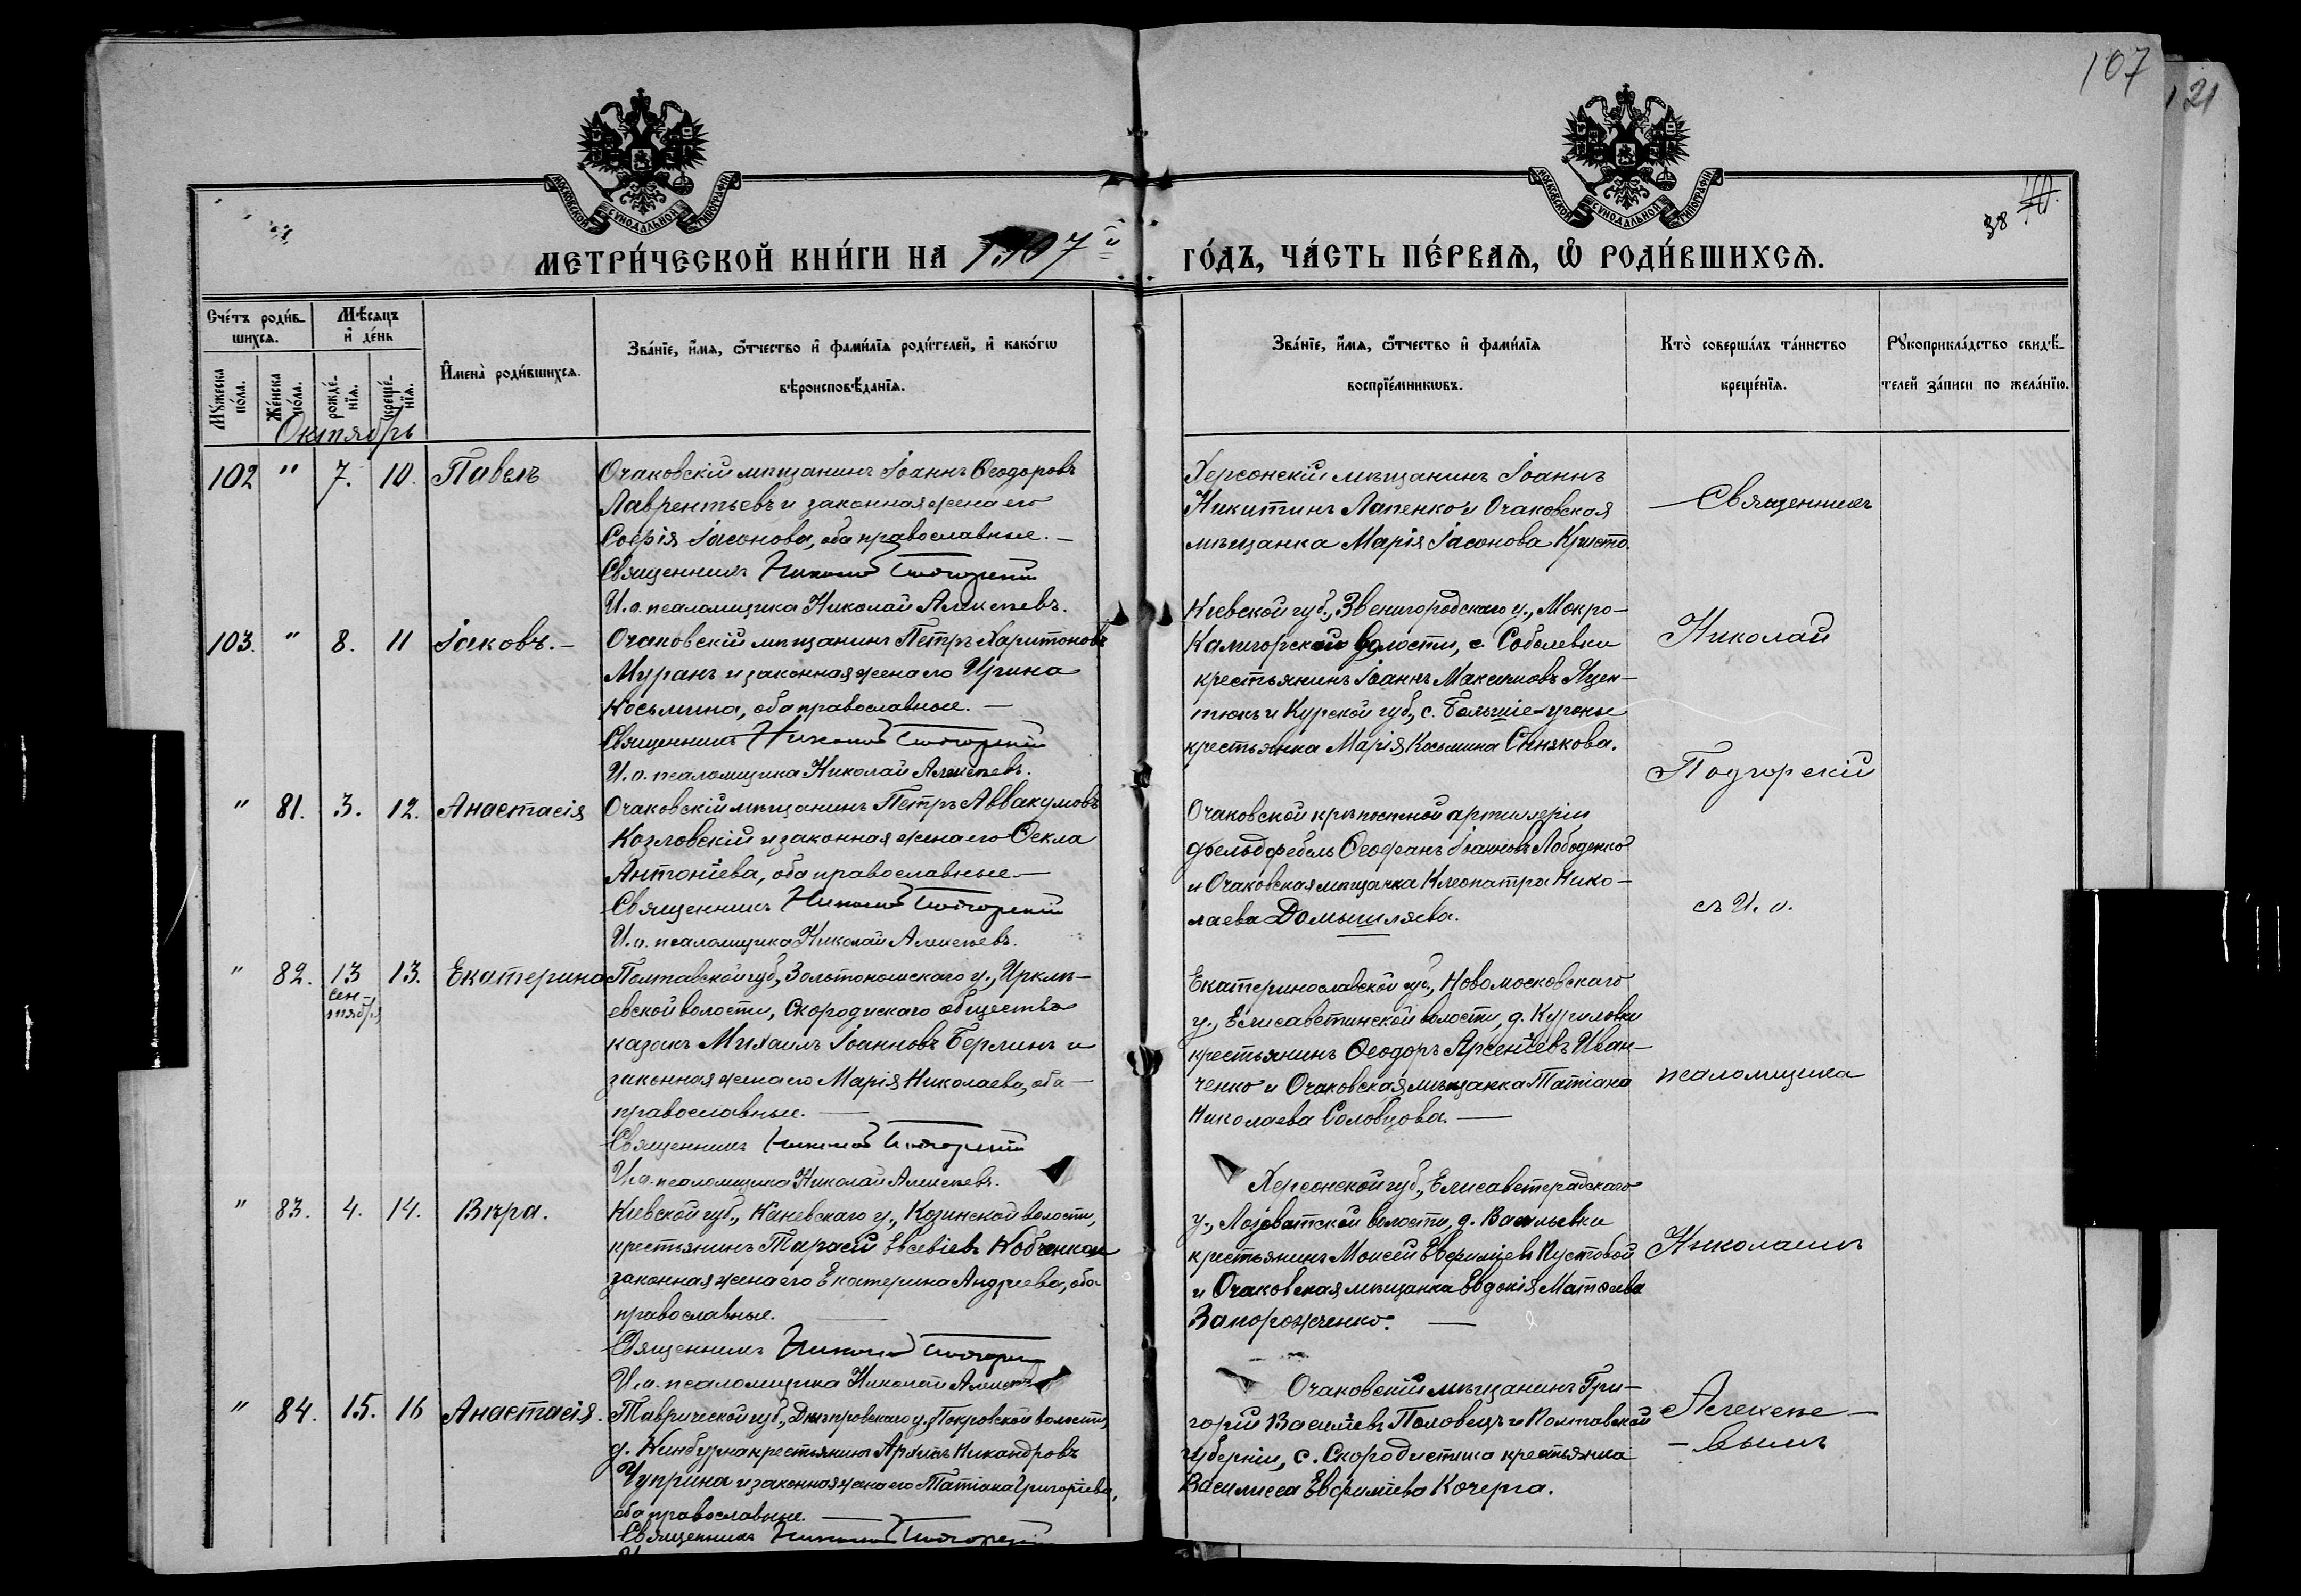 107
121
МОСКОВСКОЙ СУНОДАЛЬНОЙ ТИПОГРАФІИ
МОСКОВСКОЙ СУНОДАЛЬНОЙ ТИПОГРАФІИ
38
МЕТРИ́ЧЕСКОЙ КНИ́ГИ НА 1907й
ГО́ДЪ, ЧА́СТЬ ПЕ́РВАѦ, Ѡ РОДИ́ВШИХСѦ.
Сче́тъ роди́в-
шихсѧ.
Мꙋ́жеска по́ла.
Же́нска по́ла.
Мѣ́сѧцъ
и҆ де́нь
рожде́-
нїѧ.
креще́-
нїѧ.
И҆мена̀ роди́вшихсѧ.
Зва́нїе, и҆́мѧ, ѻ҆́тчество и҆ фами́лїѧ роди́телей, и҆ како́гѡ
вѣроисповѣ́данїѧ.
Зва́нїе, и҆́мѧ, ѻ҆́тчество и҆ фами́лїѧ
воспрїе́мникѡвъ.
Кто̀ соверша́лъ та́инство
креще́нїѧ.
Рꙋкоприкла́дство свидѣ́-
телей за́писи по жела́нїю.
Октябрь
102 " 7. 10. Павелъ
Очаковскій мѣщанинъ Іоаннъ Ѳеодоровъ
Лаврентьевъ и законная жена его
Софія Іасонова, оба православные. —
Священникъ Николай Подгорскій
И. о. псаломщика Николай Алексѣевъ.
Херсонскій мѣщанинъ Іоаннъ
Никитинъ Лапенко и Очаковская
мѣщанка Марія Іасонова Кристо.
103. " 8. 11 Іаковъ. —
Очаковскій мѣщанинъ Петръ Харитоновъ
Муранъ и законная жена его Ирина
Косьмина, оба православные. —
Священникъ Николай Подгорскій
И. о. псаломщика Николай Алексѣевъ.
Кіевской губ., Звенигородскаго у., Мокро-
Калигорской волости, с. Соболевки
крестьянинъ Іоаннъ Максимовъ Яцен-
тюкъ и Курской губ., с. Большіе-угоны
крестьянка Марія Косьмина Синякова.
" 81. 3. 12. Анастасія
Очаковскій мѣщанинъ Петръ Аввакумовъ
Козловскій и законная жена его Ѳекла
Антоніева, оба православные —
Священникъ Николай Подгорскій
И. о. псаломщика Николай Алексѣевъ.
Очаковской крѣпостной артиллеріи
фельдфебель Ѳеофанъ Іоанновъ Лободенко
и Очаковская мѣщанка Клеопатра Нико-
лаева Домышляева.
" 82. 13 сен-
тября 13. Екатерина
Полтавской губ., Золтоношскаго у., Ирклѣ-
евской волости, Скородискаго общества
казакъ Михаилъ Іоанновъ Берлинъ и
законная жена его Марія Николаева, оба —
православные. —
Священникъ Николай Подгорскій
И. о. псаломщика Николай Алексѣевъ.
Екатеринославской губ., Новомосковскаго
у., Елисаветинской волости, д. Куриловки
крестьянинъ Ѳеодоръ Арсеніевъ Иван-
ченко и Очаковская мѣщанка Татіана
Николаева Соловцова. —
" 83. 4. 14. Вѣра.
Кіевской губ., Каневскаго у., Козинской волости,
крестьянинъ Тарасій Евсевіевъ Кобченко и
законная жена его Екатерина Андреева, оба
православные. —
Священникъ Николай Подгорскій
И. о. псаломщика Николай Алексѣевъ
Херсонской губ., Елисаветградскаго
у., Лозоватской волости, д. Васильевки
крестьянинъ Моисей Евфиміевъ Пустовой
и Очаковская мѣщанка Евдокія Матѳеева
Запорожченко. —
" 84. 15. 16 Анастасія.
Таврической губ., Днѣпровскаго у., Покровской волости,
д. Кинбурна крестьянинъ Архипъ Никандровъ
Чуприна и законная жена его Татіана Григоріева,
оба православные. —
Священникъ Николай Подгорскій
Очаковскій мѣщанинъ Гри-
горій Василіевъ Половецъ и Полтавской
губерніи, с. Скородистика крестьянка
Василисса Евфиміева Кочерга.
Священникъ
Николай
Подгорскій
съ И. о.
псаломщика
Николаемъ
Алексѣе-
-вымъ